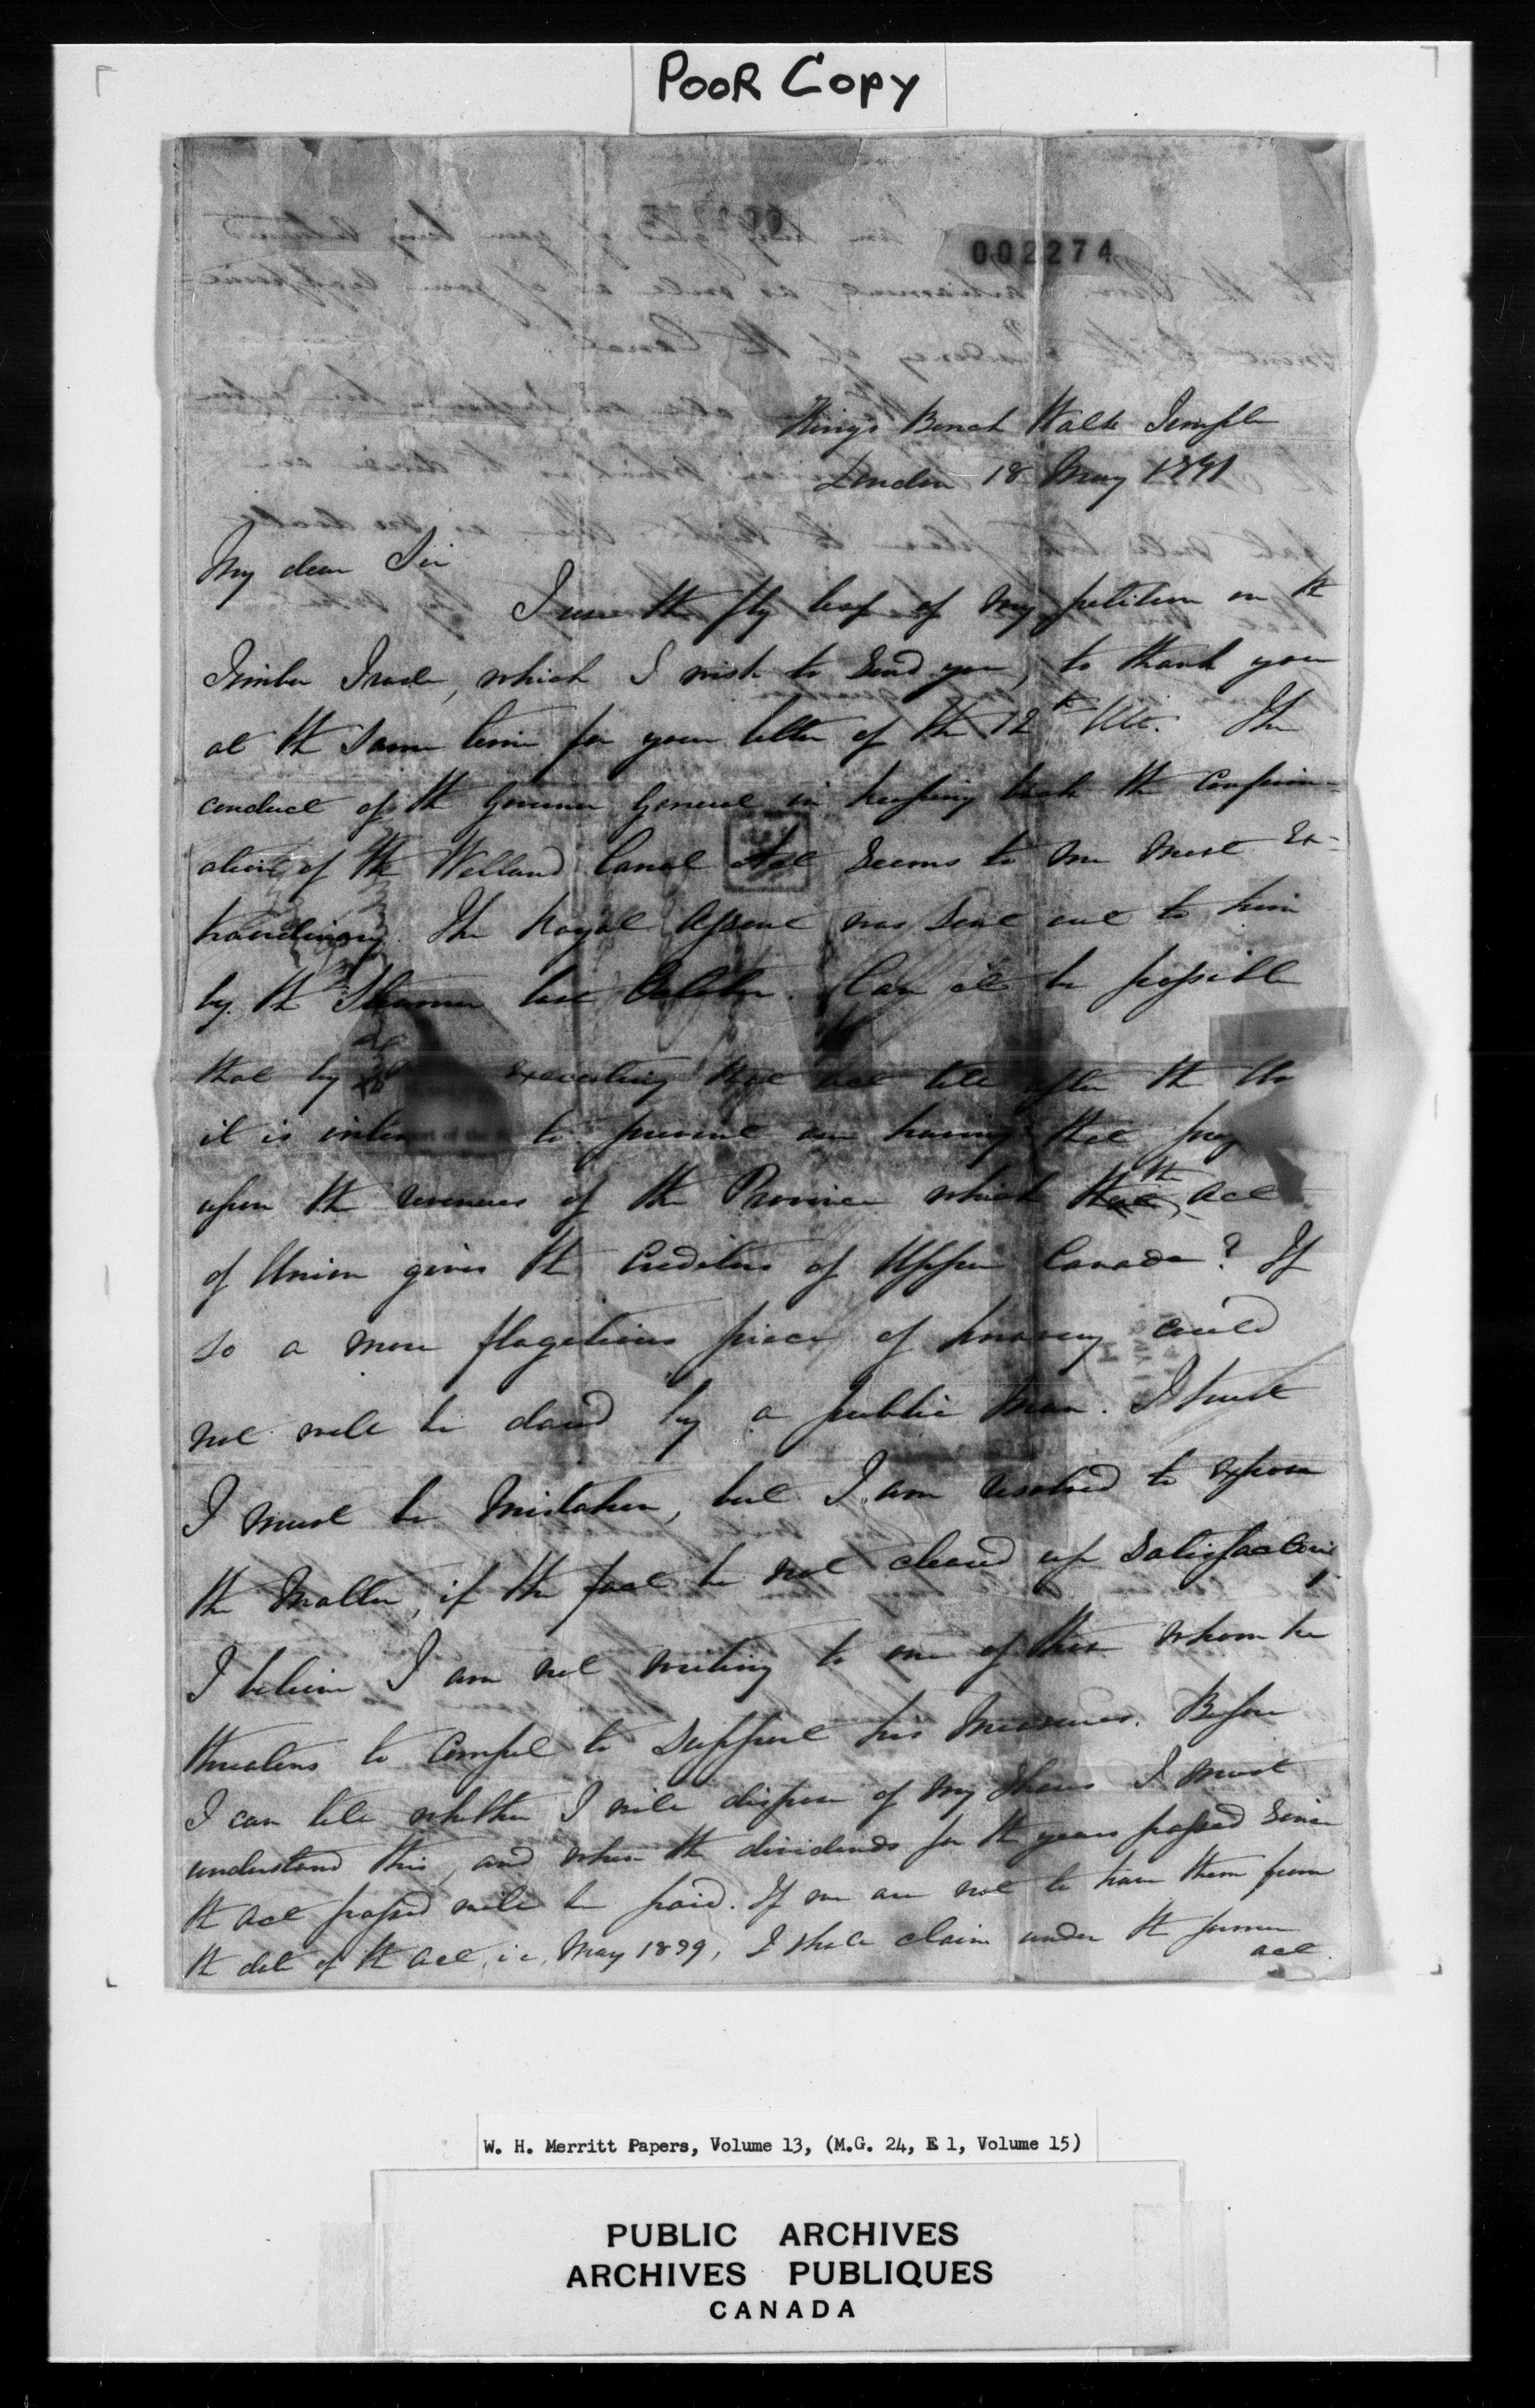 POOR COPY
002274
Kings Bench Walk Temple
London 18 May 1841
My dear Sir
I use the fly leaf of my petition on the
Timber Trade, which I wish to send you, to thank you
at the same time for your letter of the 12th Ult. The
conduct of the Governor General in keeping back the confirm=
ation of the Welland Canal Act seems to me most ex-
traordinary. The Royal Assent was sent out to him
by the Steamer last October. Can it be possible
that by executing that act till after the Un
it is inten to prevent our having that
upon the revenues of the Province which the act
of Union gives the Creditors of Upper Canada? If
so a more flagitious piece of knavery could
not well be dared by a public man. I trust
I must be mistaken, but I am resolved to expose
the matter, if the fact be not cleared up satisfactorily
I believe I am not writing to one of those whom he
threatens to compel to support his measures. Before
I can tell whether I will dispose of my shares I must
understand this, and when the dividends for the years passed since
the act passed will be paid. If we are not to have them from
the date of the act, i.e. May 1839, I shall claim under the former
act.
W. H. Merritt Papers, Volume 13, (M.G. 24, E 1, Volume 15)
PUBLIC ARCHIVES
ARCHIVES PUBLIQUES
CANADA